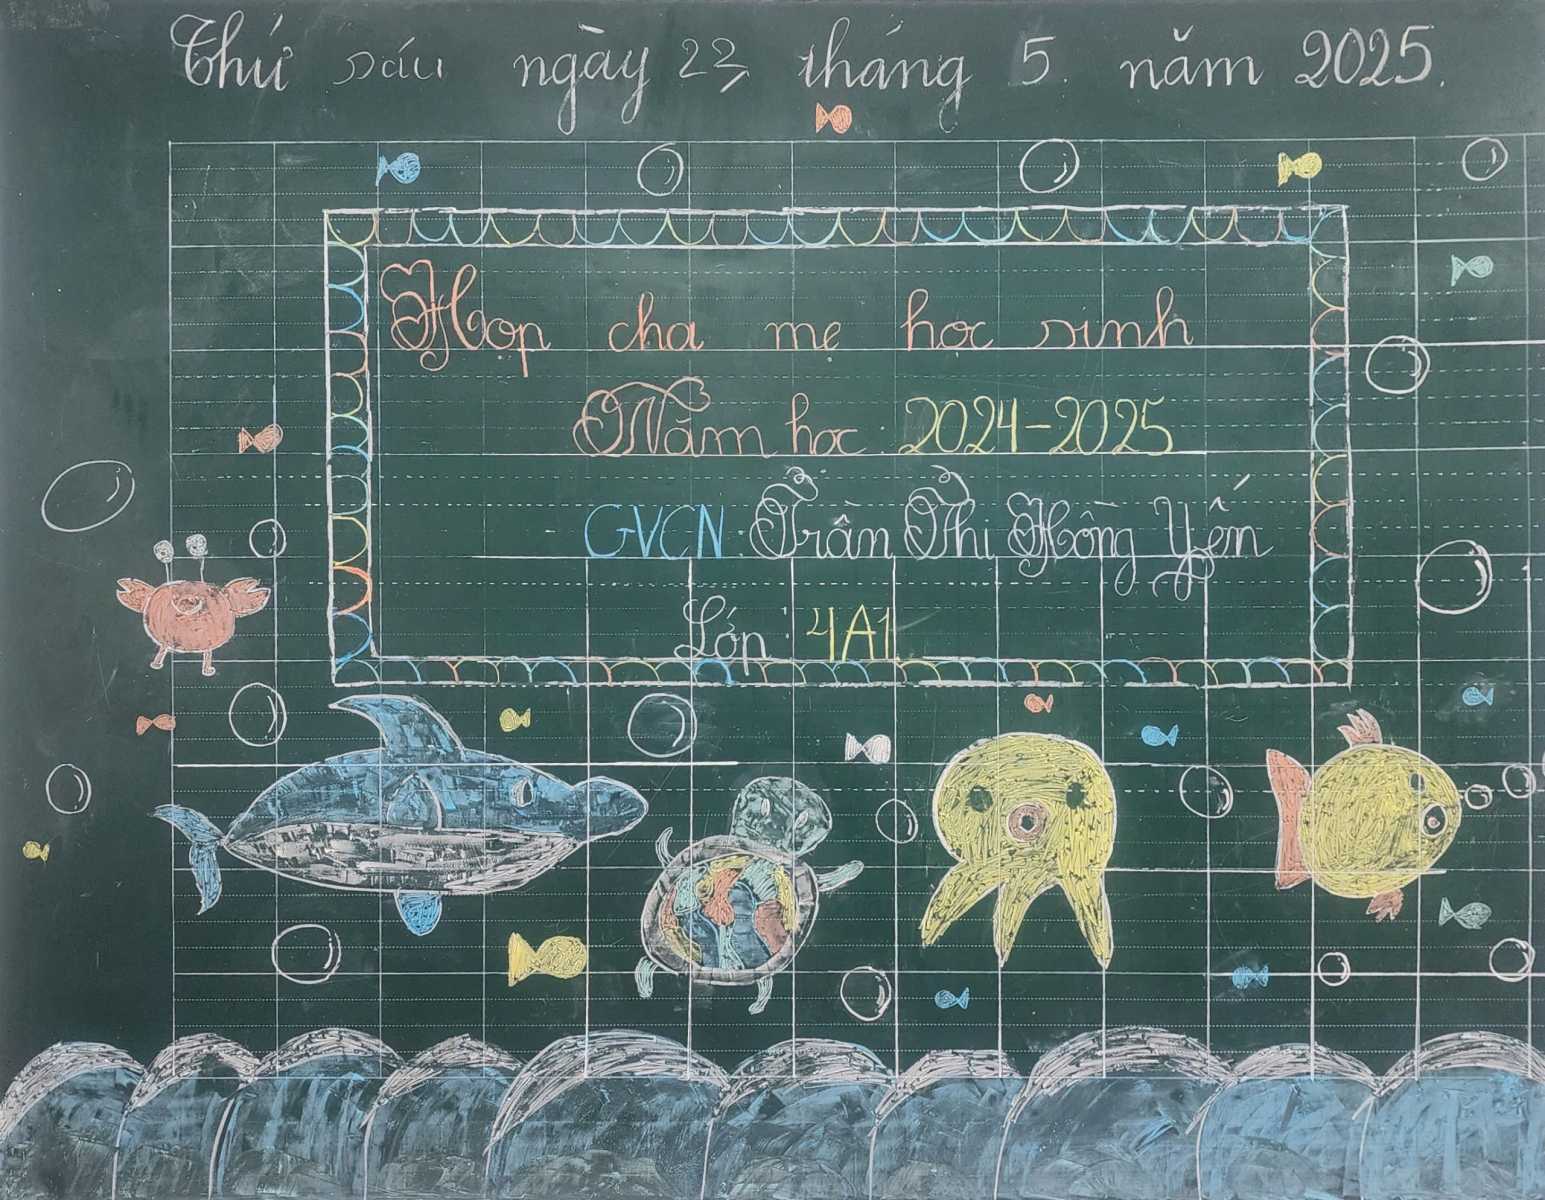 Thứ sáu ngày 23 tháng 5 năm 2025.
Họp cha mẹ học sinh
Năm học: 2024-2025
GVCN: Trần Thi Hồng Yến
Lớp: 4A1